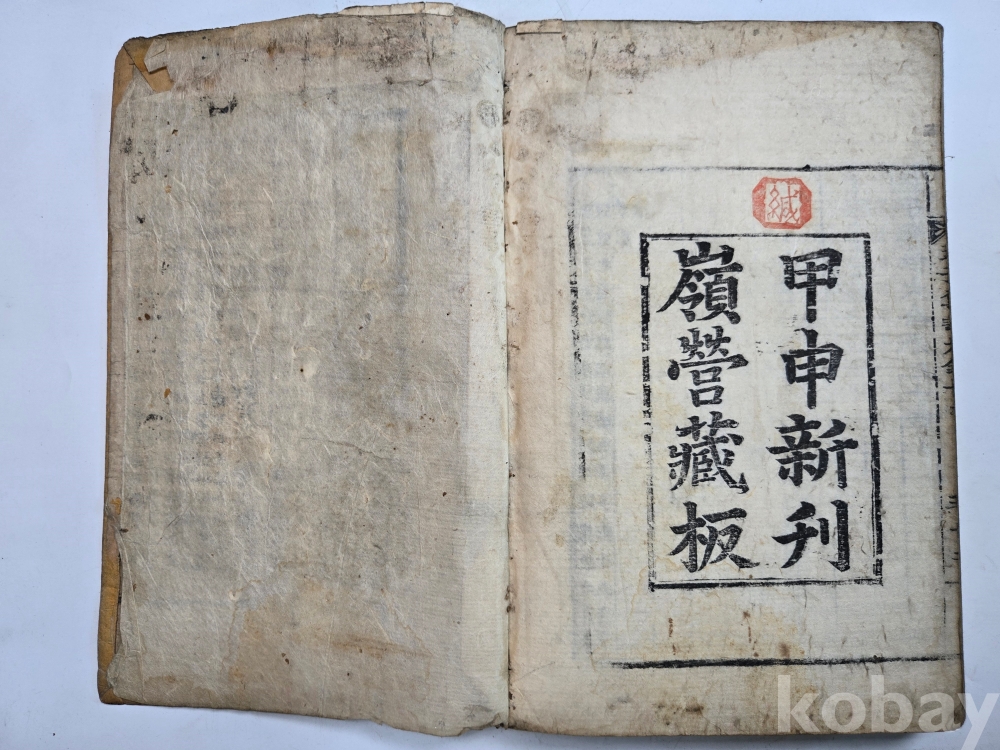 緘
甲申新刊
嶺營藏板
kobay